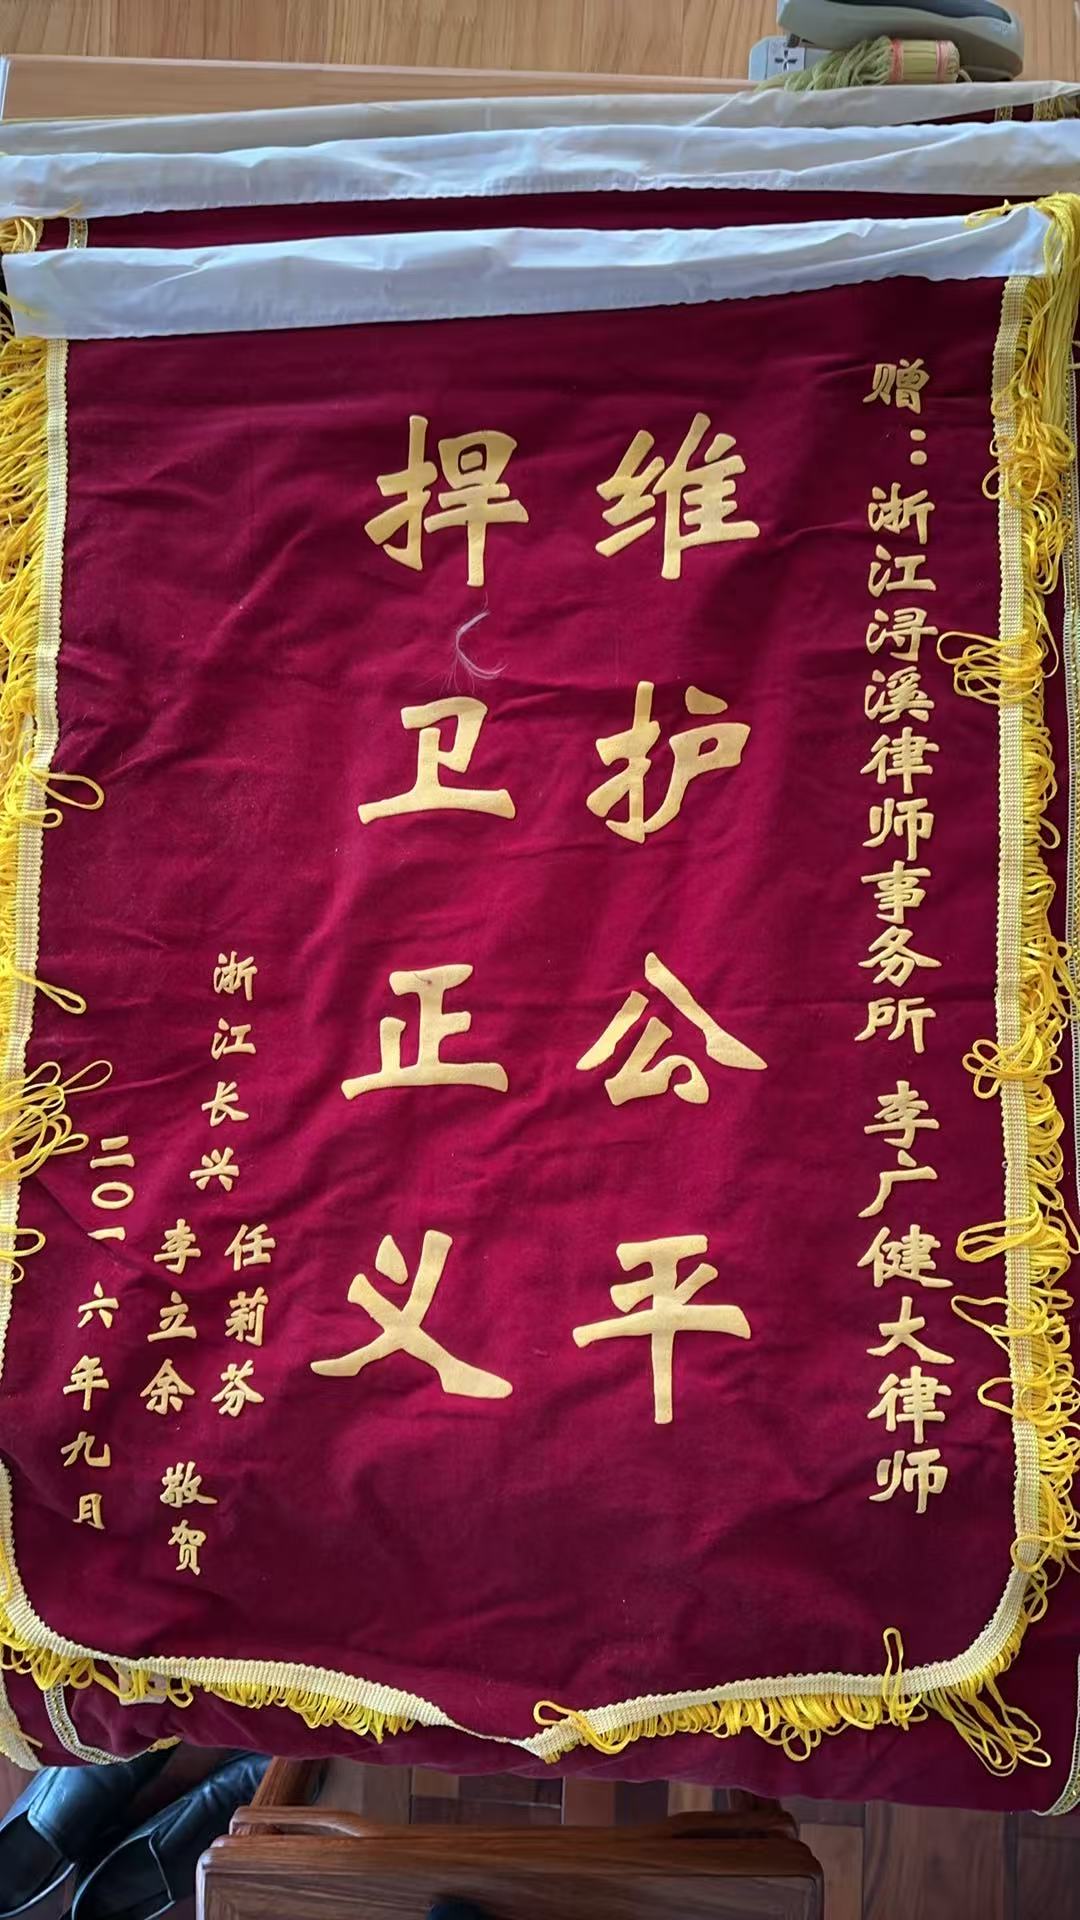 赠：浙江浔溪律师事务所 李广健大律师
维护公平
捍卫正义
浙江长兴 任莉芬
李立余 敬贺
二〇一六年九月